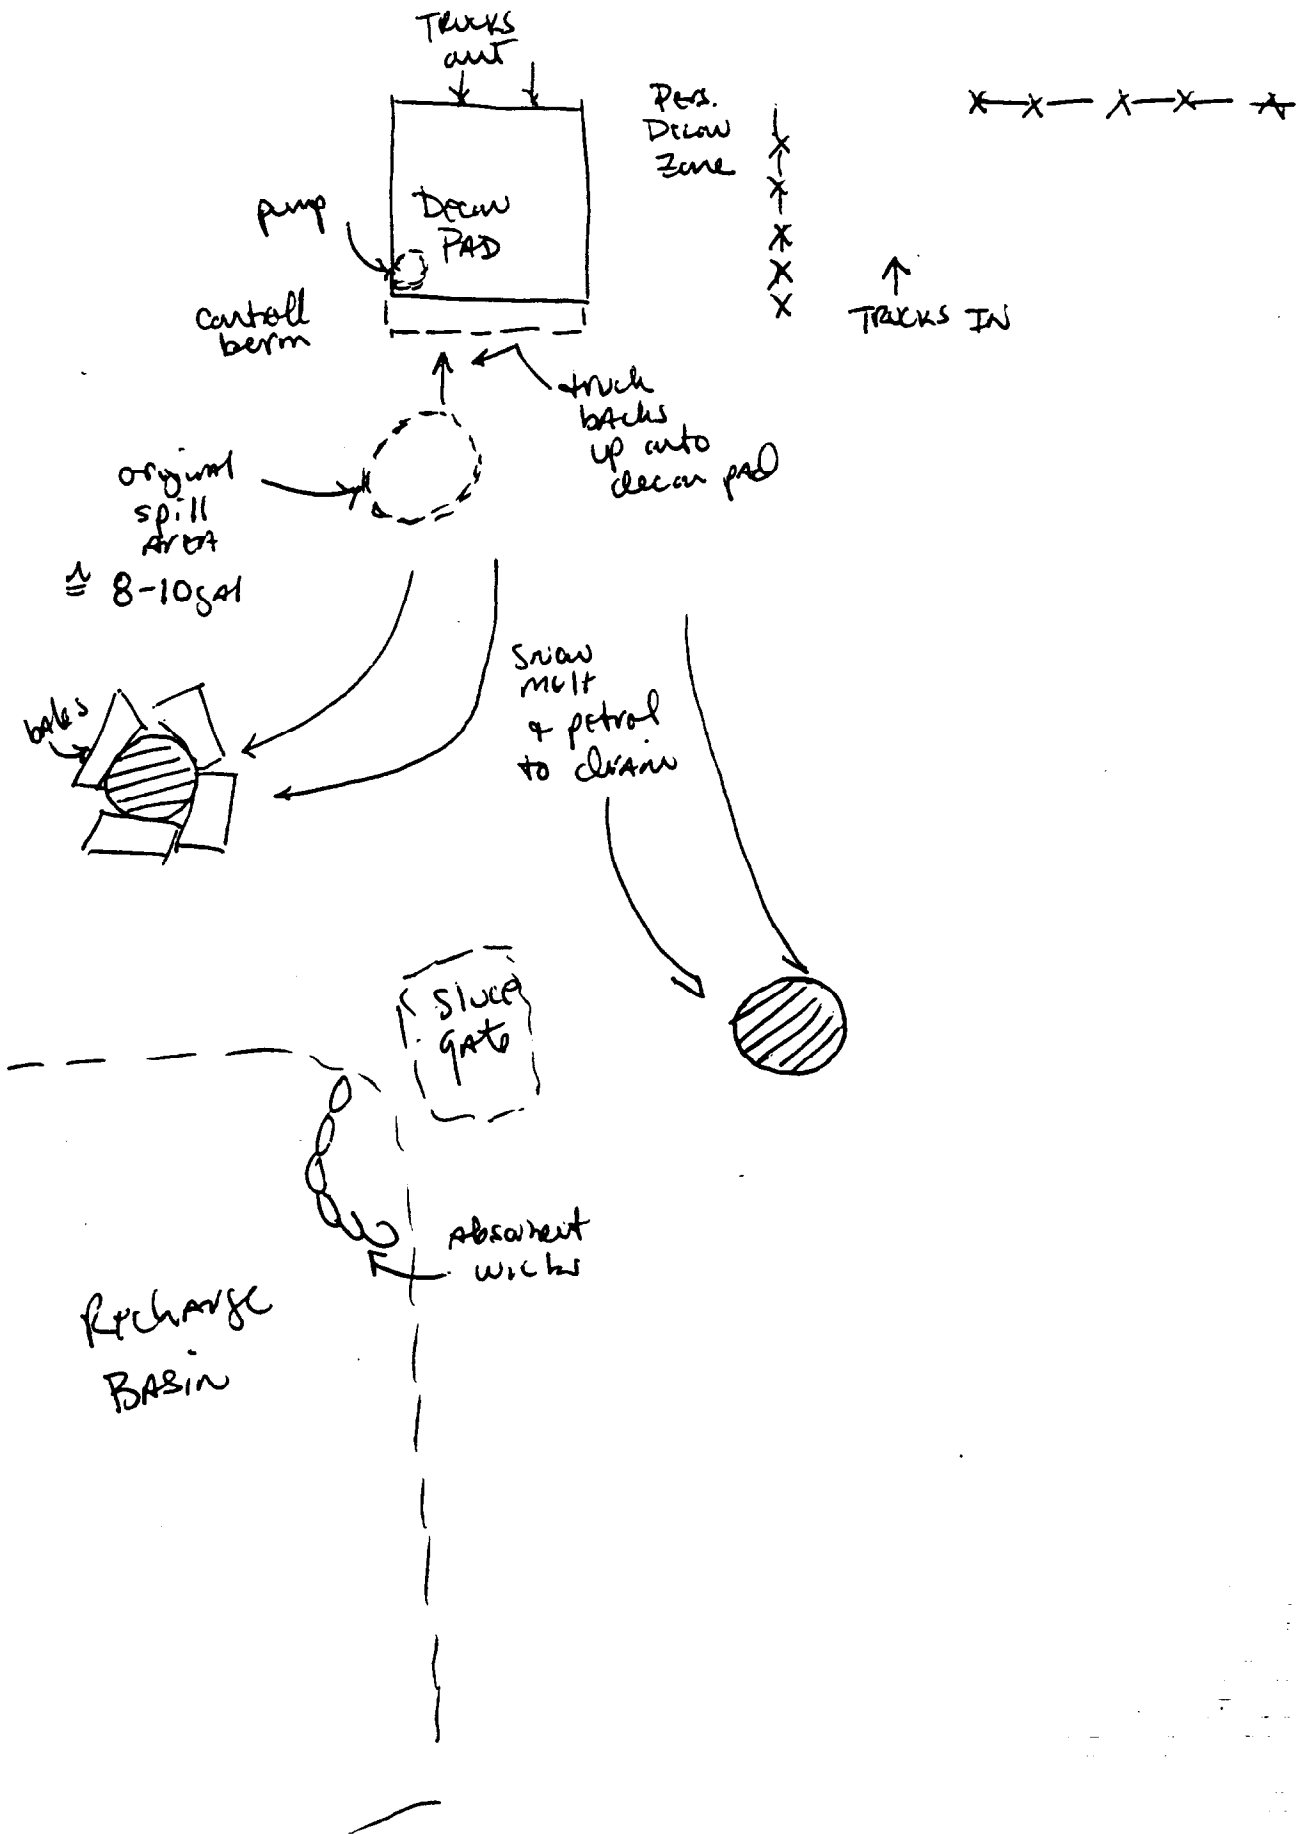 TRUCKS
out
Pers.
Decon
Zone
pump
Decon
PAD
Controll
berm
TRUCKS IN
truck
backs
up onto
decon pad
original
spill
AREA
≅ 8-10 gal
Snow
melt
& petrol
to drain
bales
Sluce
gate
Absorbent
wicks
Recharge
BASIN